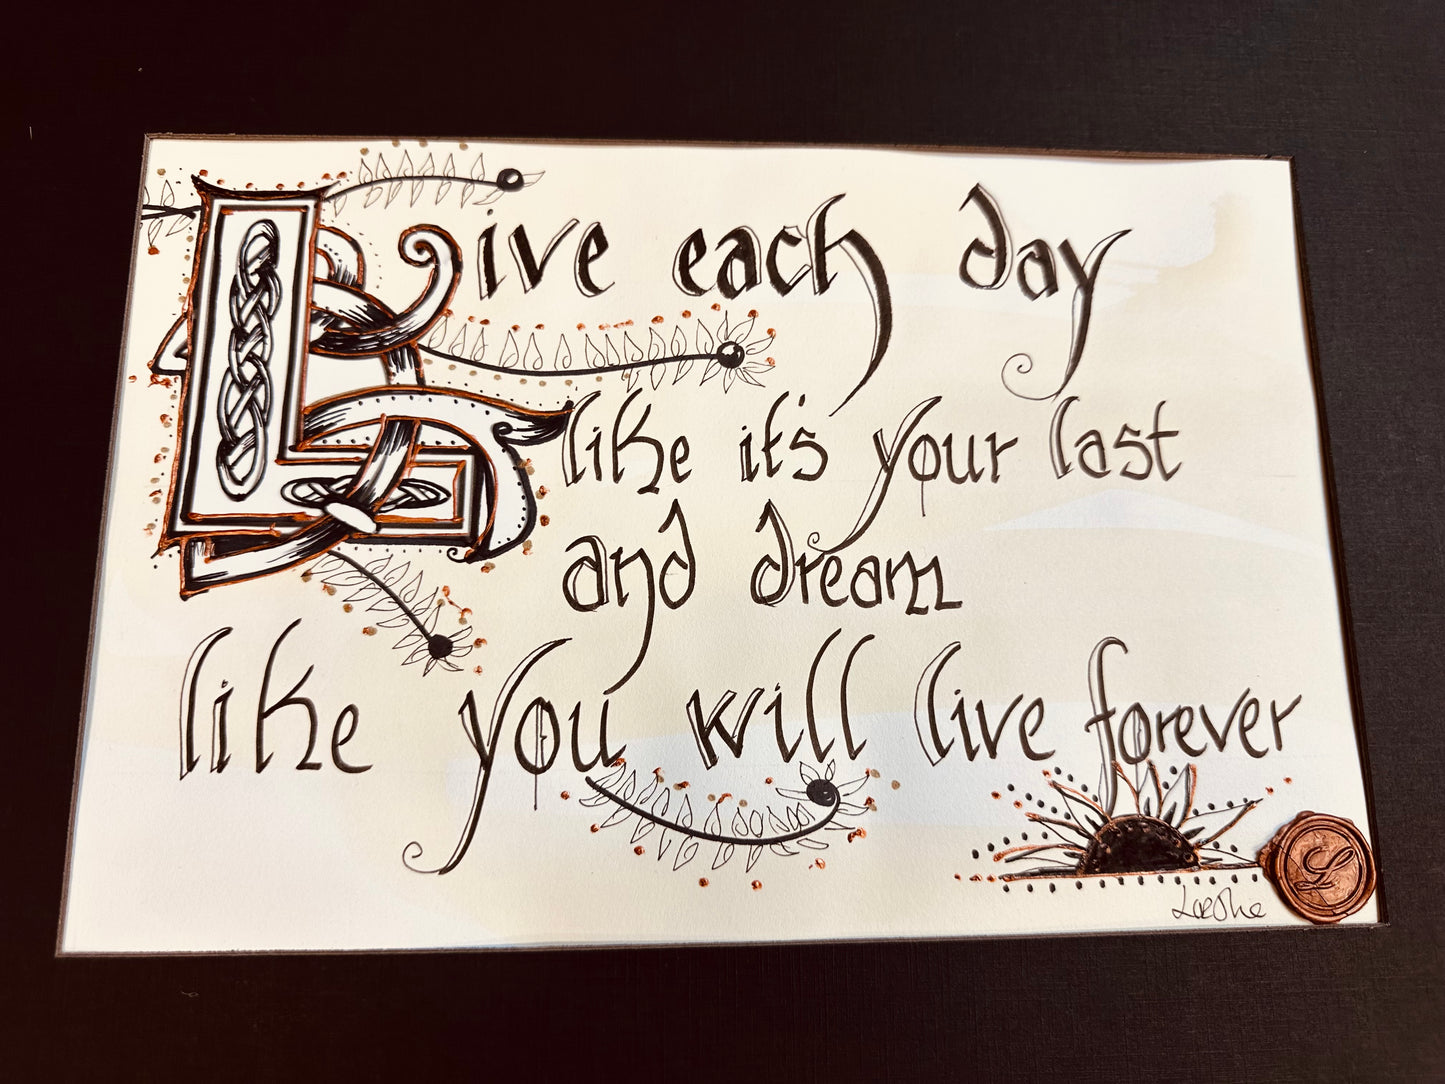 Live each day
like it's your last
and dream
like you will live forever
L